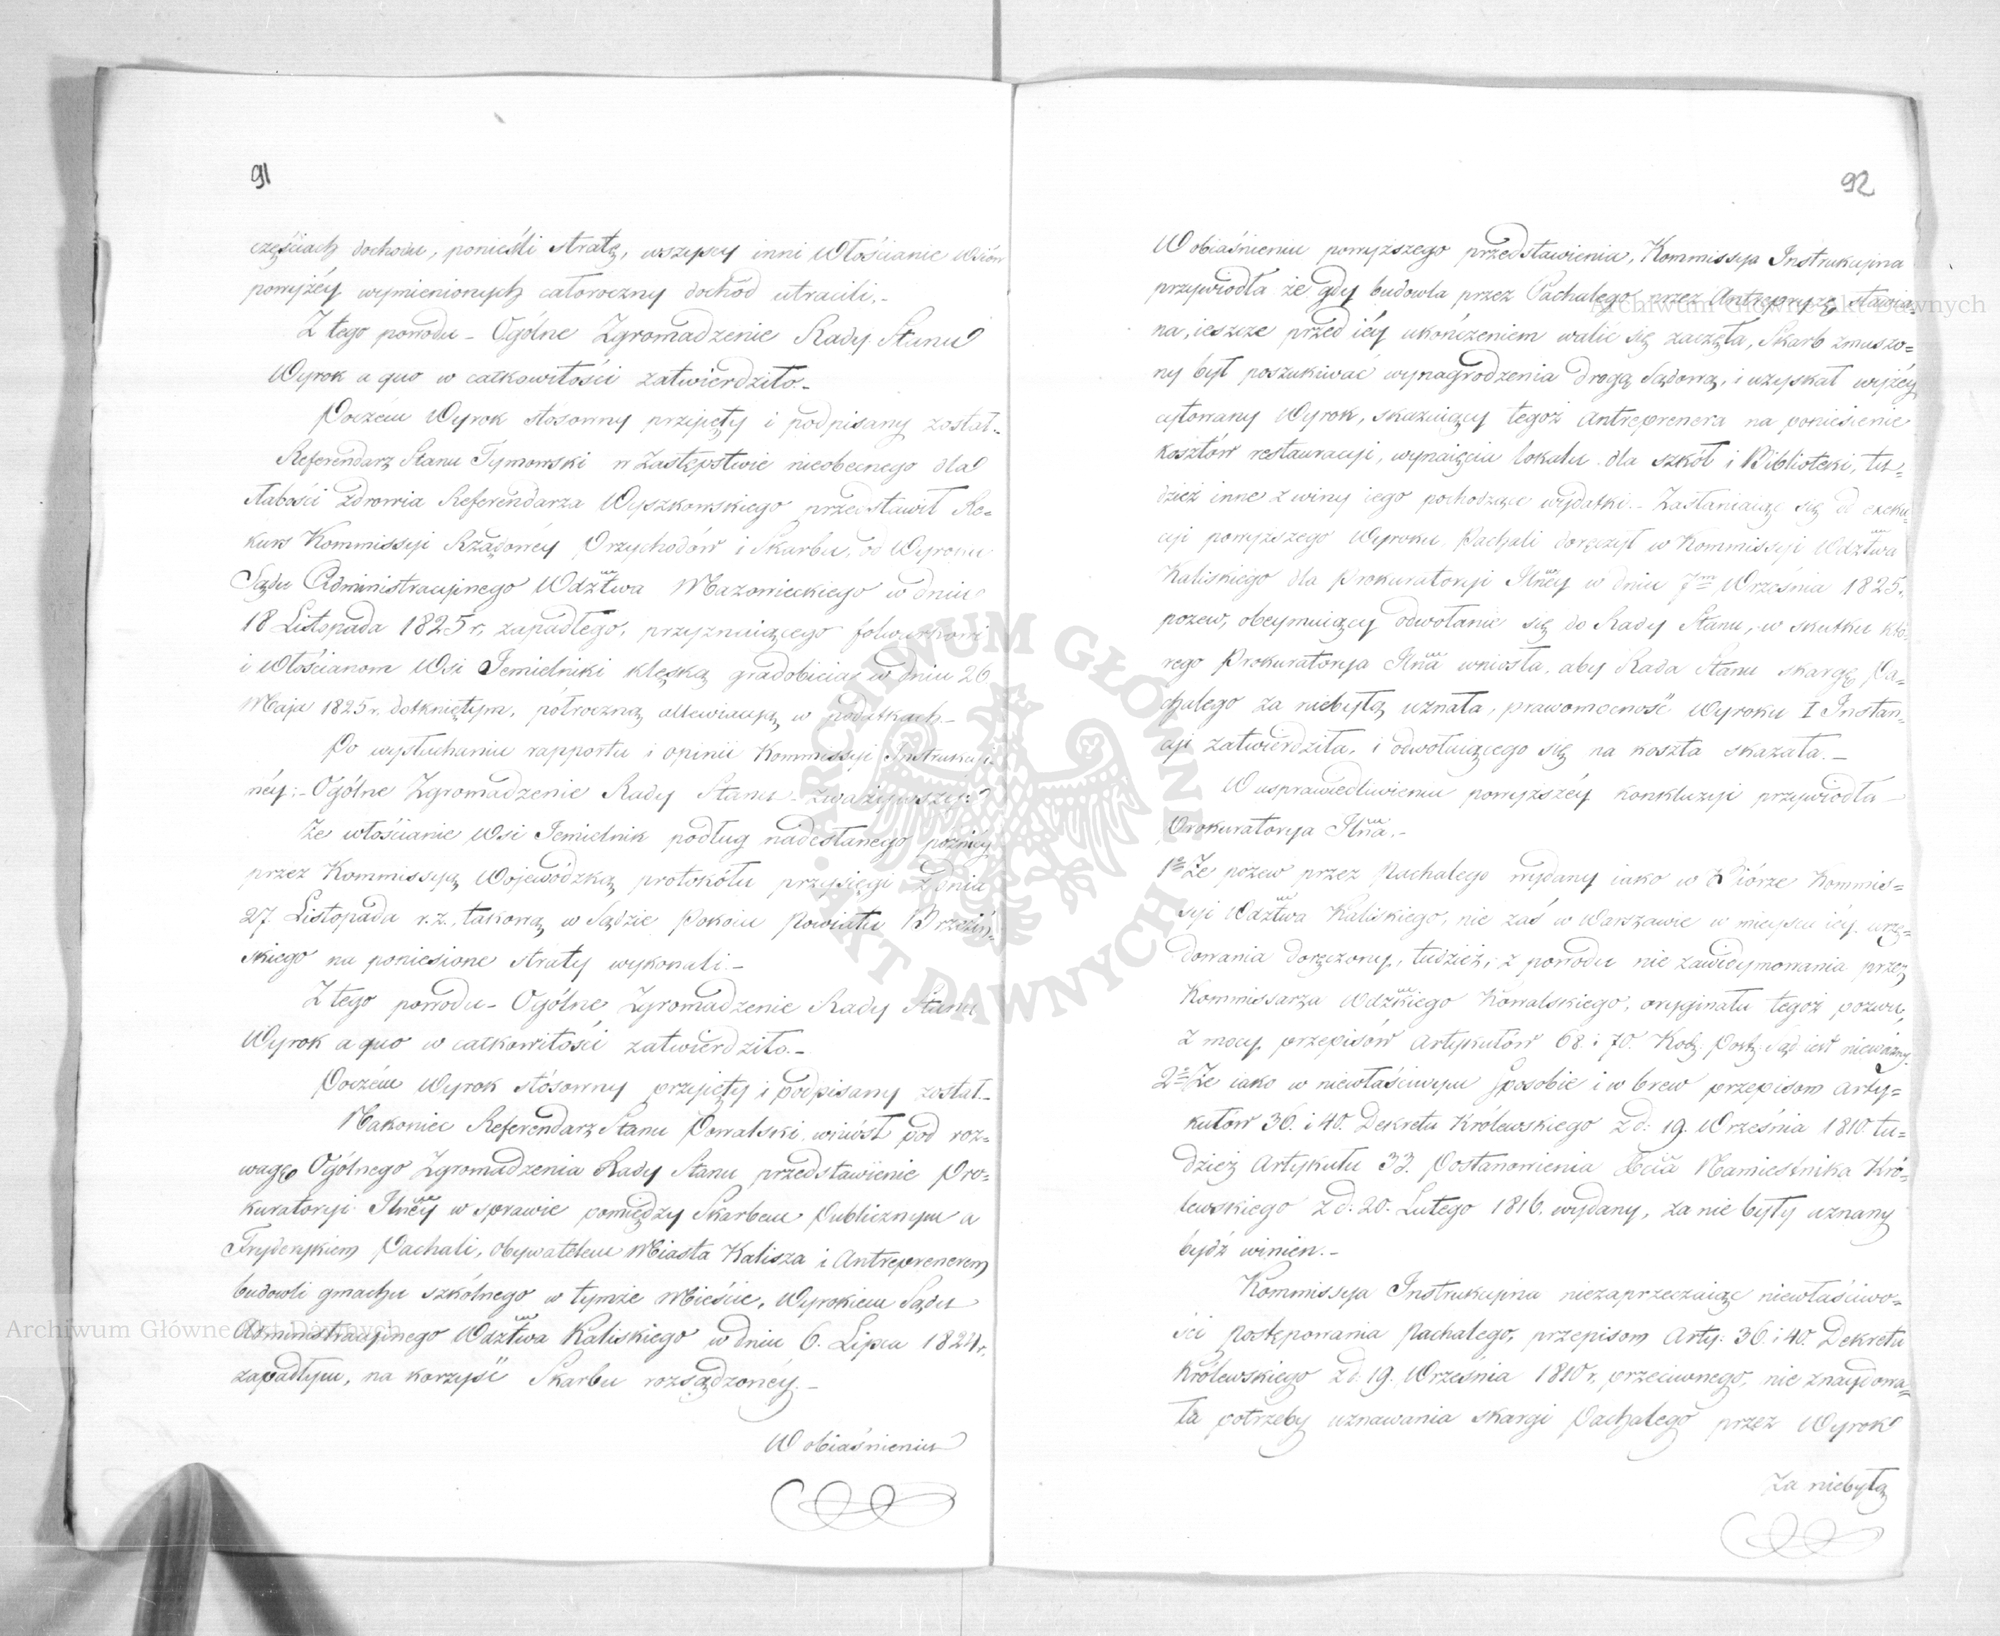 91
częściach dochodu, ponieśli stratę, wszyscy inni Włościanie Wsiów
powyżéy wymienionych całoroczny dochód utracili.-
Z tego powodu - Ogólne Zgromadzenie Rady Stanu
Wyrok a quo w całkowitości zatwierdziło.-
Poczém Wyrok stósowny przyięty i podpisany został.-
Referendarz Stanu Tymowski w Zastępstwie nieobecnego dla
słabości zdrowia Referendarza Wyszkowskiego przedstawił Re=
kurs Kommissyi Rządowéy Przychodów i Skarbu, od Wyroku
Sądu Administracyinego Wdztwa Mazowieckiego w dniu
18 Listopada 1825 r. zapadłego, przyznaiącego folwarkowi
i Włościanom Wsi Jemielniki klęską gradobicia w dniu 26
Maja 1825 r. dotkniętym, półroczną allewiacyą w podatkach.-
Po wysłuchaniu rapportu i opinii Kommissyi Instrukcyi=
néy:- Ogólne Zgromadzenie Rady Stanu - zważywszy:
Że włościanie Wsi Jemielnik podług nadesłanego późniéy
przez Kommissyą Wojewódzką protokółu przysięgi z dnia
27. Listopada r. z. takową w Sądzie Pokoiu Powiatu Brzeziń=
skiego na poniesione straty wykonali.-
Z tego powodu - Ogólne Zgromadzenie Rady Stanu
Wyrok a quo w całkowitości zatwierdziło.-
Poczém Wyrok stósowny przyięty i podpisany został.-
Nakoniec Referendarz Stanu Powalski, wniósł pod roz=
wagę Ogólnego Zgromadzenia Rady Stanu przedstawienie Pro=
kuratoryi Jlnéy w sprawie pomiędzy Skarbem Publicznym a
Fryderykiem Pachali, obywatelem Miasta Kalisza i Antreprenerem
budowli gmachu szkólnego w tymże Mieście, Wyrokiem Sądu
Administracyinego Wdztwa Kaliskiego w dniu 6. Lipca 1824 r.
zapadłym, na korzyść Skarbu rozsądzonéy.-
W obiaśnieniu
92
W obiaśnieniu powyższego przedstawienia, Kommissya Instrukcyina
przywiodła że gdy budowla przez Pachalego przez Antrepryzę stawia=
na, ieszcze przed iéy ukończeniem walić się zaczęła, Skarb zmuszo=
ny był poszukiwać wynagrodzenia drogą Sądową, i uzyskał wyżéy
cytowany Wyrok, skazuiący tegoż Antreprenera na poniesienie
kosztów restauracyi, wynaięcia lokalu dla szkół i Biblioteki, tu=
dzież inne z winy iego pochodzące wydatki.- Zasłaniaiąc się od exeku=
cyi powyższego Wyroku, Pachali doręczył w Kommissyi Wdztwa
Kaliskiego dla Prokuratoryi Jlnéy w dniu 7m Września 1825.
pozew, obeymuiący odwołanie się do Rady Stanu, w skutku któ=
rego Prokuratorya Jlna wniosła, aby Rada Stanu skargę Pa=
chalego za niebyłą uznała, prawomocność Wyroku I Instan=
cyi zatwierdziła, i odwołuiącego się na koszta skazała.-
W usprawiedliwieniu powyższéy konkluzyi przywiodła
Prokuratorya Jlna.-
1e Że pozew przez Pachalego wydany iako w Biórze Kommis=
syi Wdztwa Kaliskiego, nie zaś w Warszawie w mieyscu iéy urzę=
dowania doręczony, tudzież, z powodu nie zawidymowania przez
Kommissarza Wdzkiego Kowalskiego, oryginału tegoż pozwu,
z mocy przepisów Artykułów 68 i 70. Kod: Post: Sąd: iest nieważny.
2e Że iako w niewłaściwym sposobie i w brew przepisom Arty=
kułów 36. i 40. Dekretu Królewskiego z d: 19. Września 1810 tu=
dzież Artykułu 33. Postanowienia Xcia Namiestnika Kró=
lewskiego z d: 20. Lutego 1816. wydany, za nie były uznany
bydź winien.-
Kommissya Instrukcyina niezaprzeczaiąc niewłaściwo=
ści postępowania Pachalego, przepisom Arty: 36. i 40. Dekretu
Królewskiego z d. 19. Września 1810 r. przeciwnego, nie znaydowa=
ła potrzeby uznawania skargi Pachalego przez Wyrok
za niebyłą
Archiwum Główne Akt Dawnych
Archiwum Główne Akt Dawnych
ARCHIWUM GŁÓWNE AKT DAWNYCH